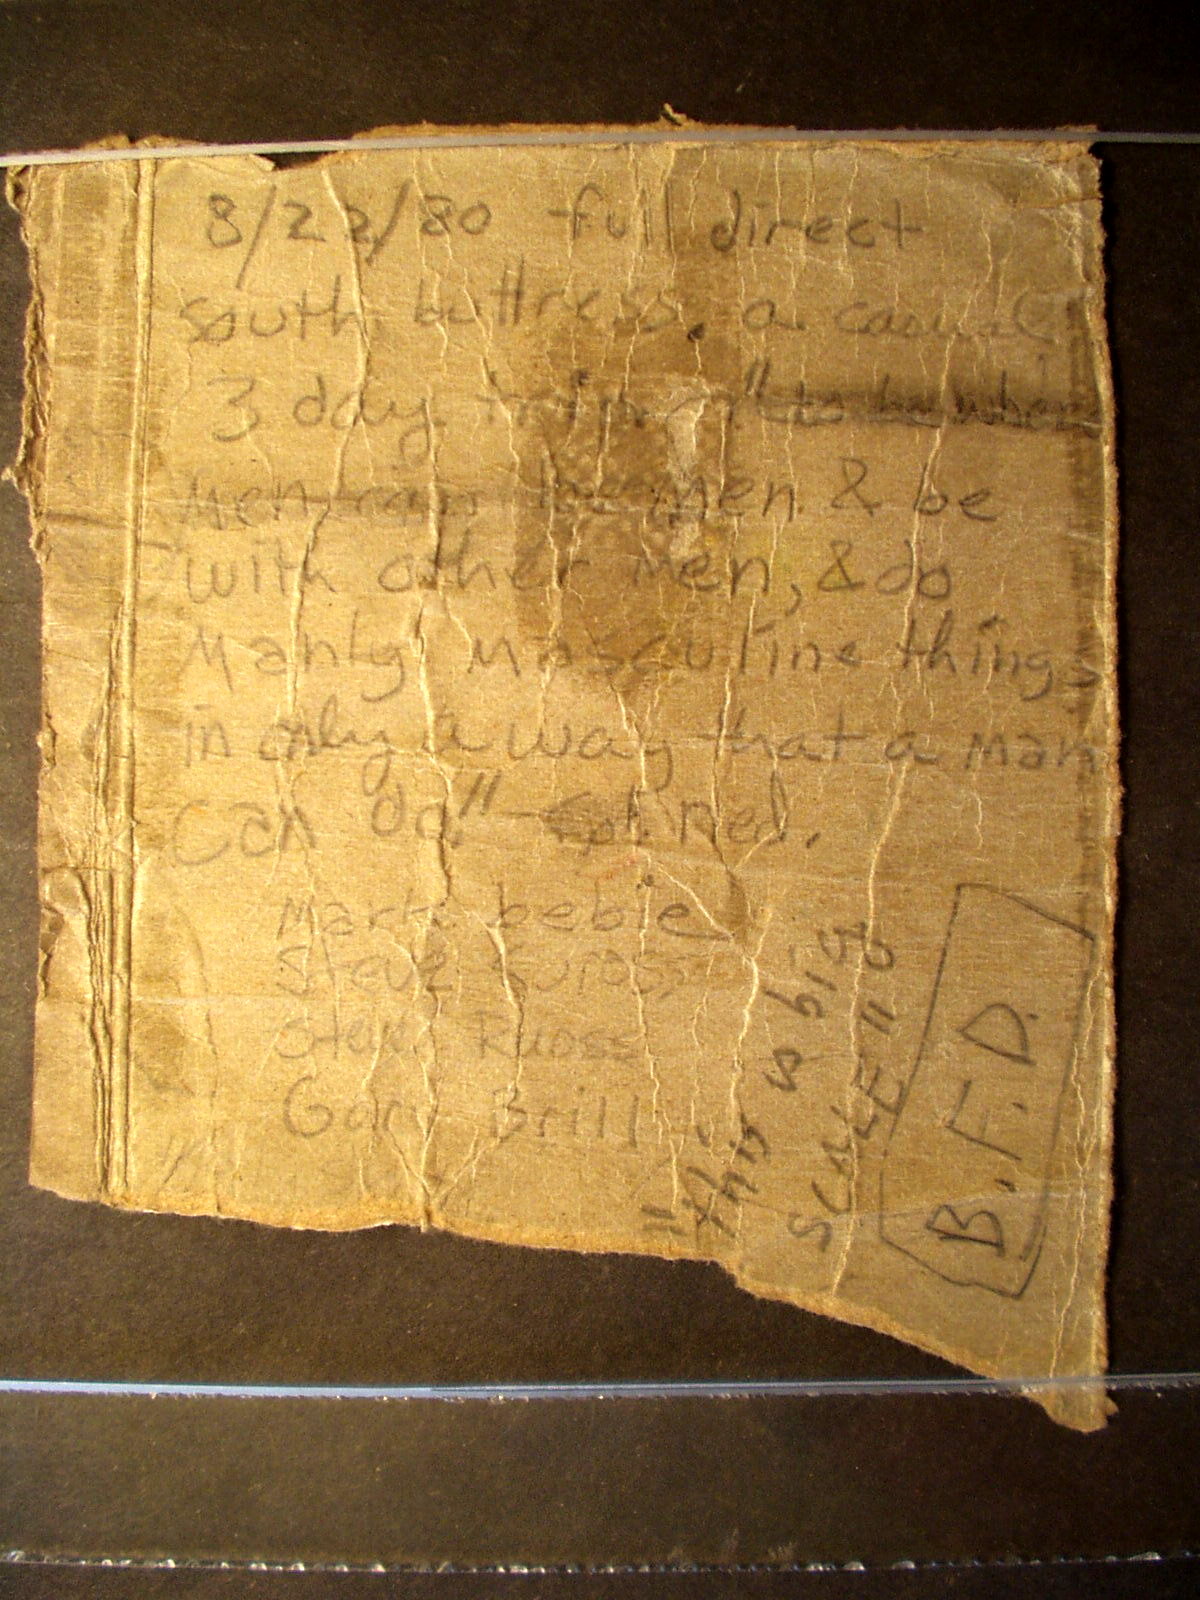 8/22/80 full direct
south buttress. a casual
3 day trip. "to be where
Men can be men & be
with other men, & do
Manly masculine things
in only a way that a man
can do."
Mark bebie
Steve
Steve Ruoss
Gary Brill
"this is big
SCALE"
B.F.D.